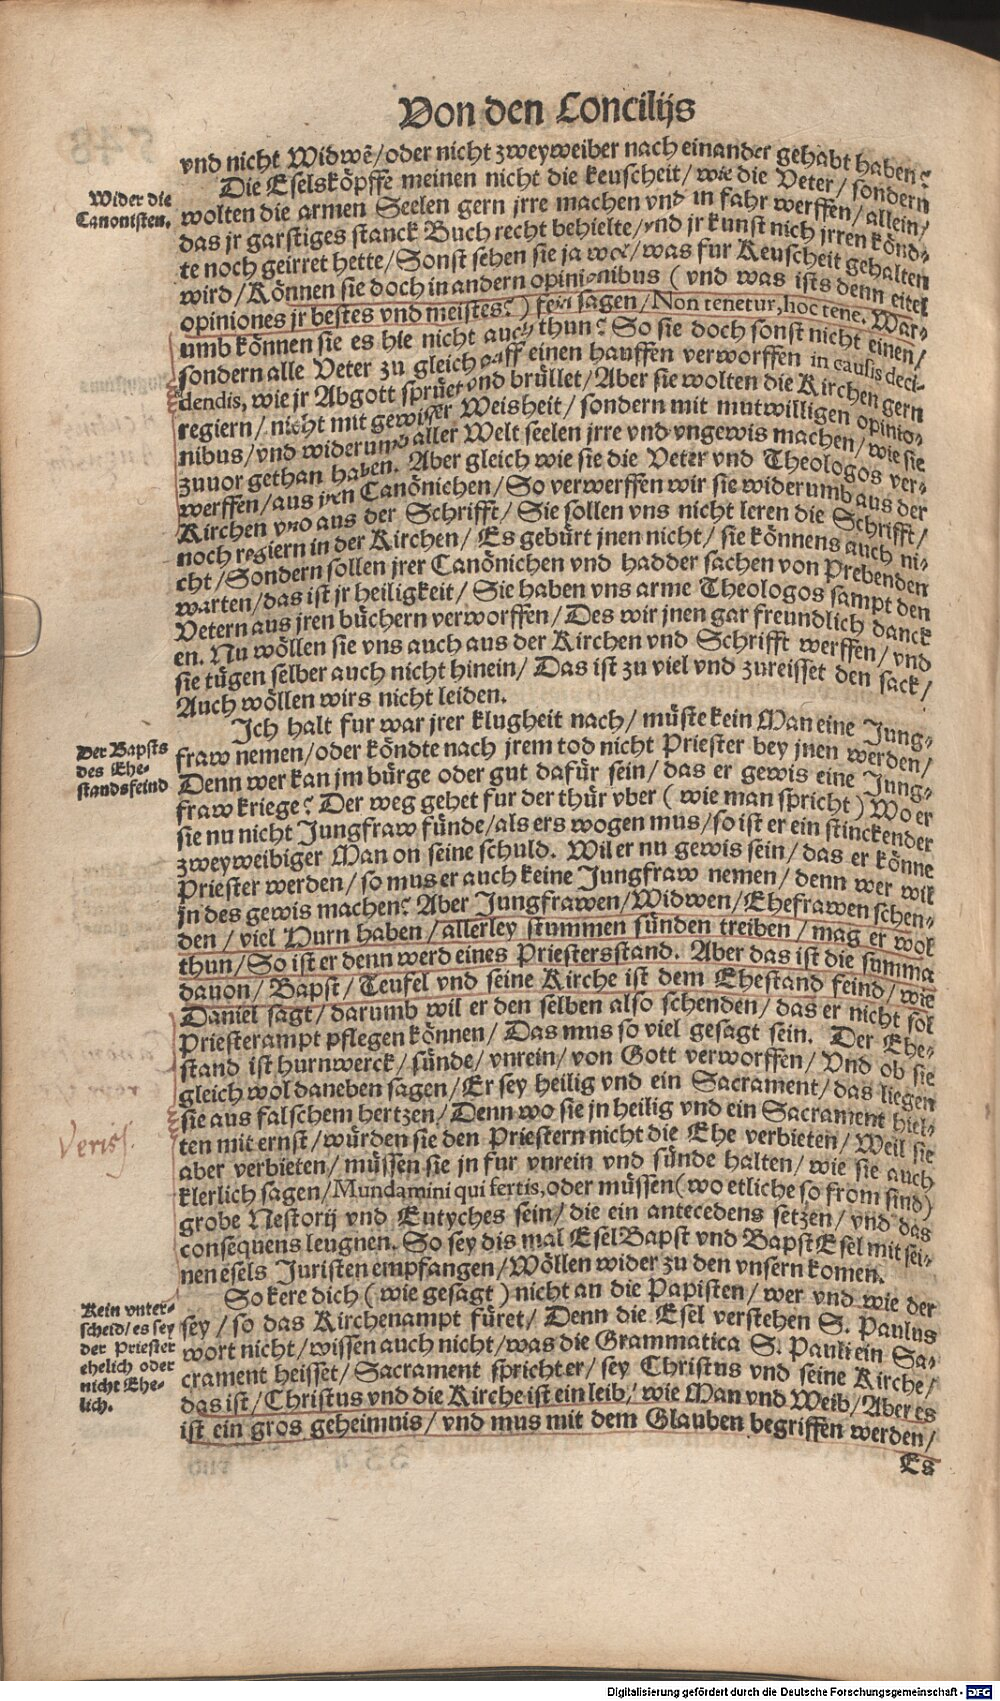 Von den Concilijs
vnd nicht Widwẽ/oder nicht zweyweiber nach einander gehabt haben?
Wider die
Canonisten.
Die Eselsköpffe meinen nicht die keuscheit/wie die Veter/sondern
wolten die armen Seelen gern jrre machen vnd in fahr werffen/allein/
das jr garstiges stanck Buch recht behielte/vnd jr kunst nich jrren könd-
te noch geirret hette/Sonst sehen sie ja wol/was fur Keuscheit gehalten
wird/Können sie doch in andern opinionibus (vnd was ists denn eitel
opiniones jr bestes vnd meistes?) fein sagen/Non tenetur, hoc tene. War-
umb können sie es hie nicht auch thun? So sie doch sonst nicht einen/
sondern alle Veter zu gleich auff einen hauffen verworffen in causis deci-
dendis, wie jr Abgott sprüet vnd brüllet/Aber sie wolten die Kirchen gern
regiern/nicht mit gewisser Weisheit/sondern mit mutwilligen opinio-
nibus/vnd widerumb aller Welt seelen jrre vnd vngewis machen/wie sie
zuuor gethan haben. Aber gleich wie sie die Veter vnd Theologos ver-
werffen/aus jren Canönichen/So verwerffen wir sie widerumb aus der
Kirchen vnd aus der Schrifft/Sie sollen vns nicht leren die Schrifft/
noch regiern in der Kirchen/Es gebürt jnen nicht/sie könnens auch ni-
cht/Sondern sollen jrer Canönichen vnd hadder sachen von Prebenden
warten/das ist jr heiligkeit/Sie haben vns arme Theologos sampt den
Vetern aus jren büchern verworffen/Des wir jnen gar freundlich danck
en. Nu wöllen sie vns auch aus der Kirchen vnd Schrifft werffen/vnd
sie tügen selber auch nicht hinein/Das ist zu viel vnd zureisset den sack/
Auch wöllen wirs nicht leiden.
Der Bapsts
des Ehe-
standsfeind
Ich halt fur war jrer klugheit nach/müste kein Man eine Jung-
fraw nemen/oder köndte nach jrem tod nicht Priester bey jnen werden/
Denn wer kan jm bürge oder gut dafür sein/das er gewis eine Jung-
fraw kriege? Der weg gehet fur der thür vber (wie man spricht) Wo er
sie nu nicht Jungfraw fünde/als ers wogen mus/so ist er ein stinckender
zweyweibiger Man on seine schuld. Wil er nu gewis sein/das er könne
Priester werden/so mus er auch keine Jungfraw nemen/denn wer wil
jn des gewis machen? Aber Jungfrawen/Widwen/Ehefrawen schen-
den/viel Hurn haben/allerley stummen sünden treiben/mag er wol
thun/So ist er denn werd eines Priestersstand. Aber das ist die summa
dauon/Bapst/Teufel vnd seine Kirche ist dem Ehestand feind/wie
Daniel sagt/darumb wil er den selben also schenden/das er nicht sol
Priesterampt pflegen können/Das mus so viel gesagt sein. Der Ehe-
stand ist hurnwerck/sünde/vnrein/von Gott verworffen/Vnd ob sie
gleich wol daneben sagen/Er sey heilig vnd ein Sacrament/das liegen
sie aus falschem hertzen/Denn wo sie jn heilig vnd ein Sacrament hiel-
Veriss.
ten mit ernst/würden sie den Priestern nicht die Ehe verbieten/Weil sie
aber verbieten/müssen sie jn fur vnrein vnd sünde halten/wie sie auch
klerlich sagen/Mundamini qui fertis, oder müssen (wo etliche so from sind)
grobe Nestorij vnd Eutyches sein/die ein antecedens setzen/vnd das
consequens leugnen. So sey dis mal Esel Bapst vnd Bapst Esel mit sei-
nen esels Juristen empfangen/Wöllen wider zu den vnsern komen.
Kein vnter-
scheid/es sey
der Priester
ehelich oder
nicht Ehe-
lich.
So kere dich (wie gesagt) nicht an die Papisten/wer vnd wie der
sey/so das Kirchenampt füret/Denn die Esel verstehen S. Paulus
wort nicht/wissen auch nicht/was die Grammatica S. Pauli ein Sa-
crament heisset/Sacrament spricht er/sey Christus vnd seine Kirche/
das ist/Christus vnd die Kirche ist ein leib/wie Man vnd Weib/Aber es
ist ein gros geheimnis/vnd mus mit dem Glauben begriffen werden/
Es
Digitalisierung gefördert durch die Deutsche Forschungsgemeinschaft - DFG